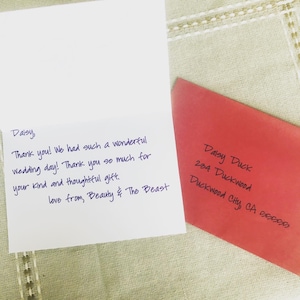 Daisy,
Thank you! We had such a wonderful
wedding day! Thank you so much for
your kind and thoughtful gift.
love from, Beauty & The Beast
Daisy Duck
234 Duckwood
Duckwood City, CA 55555